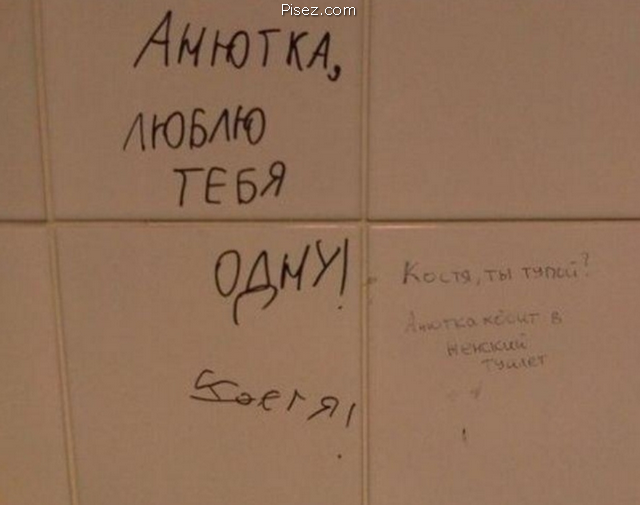 Pisez.com
Анютка,
люблю
тебя
одну!
Костя!
Костя, ты тупой?
Анютка ходит в
женский
туалет